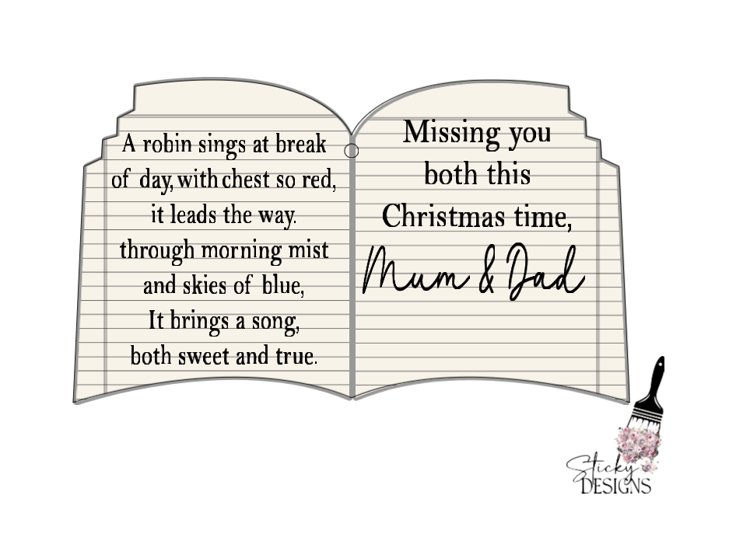 A robin sings at break
of day, with chest so red,
it leads the way.
through morning mist
and skies of blue,
It brings a song,
both sweet and true.
Missing you
both this
Christmas time,
Mum & Dad
Sticky
DESIGNS